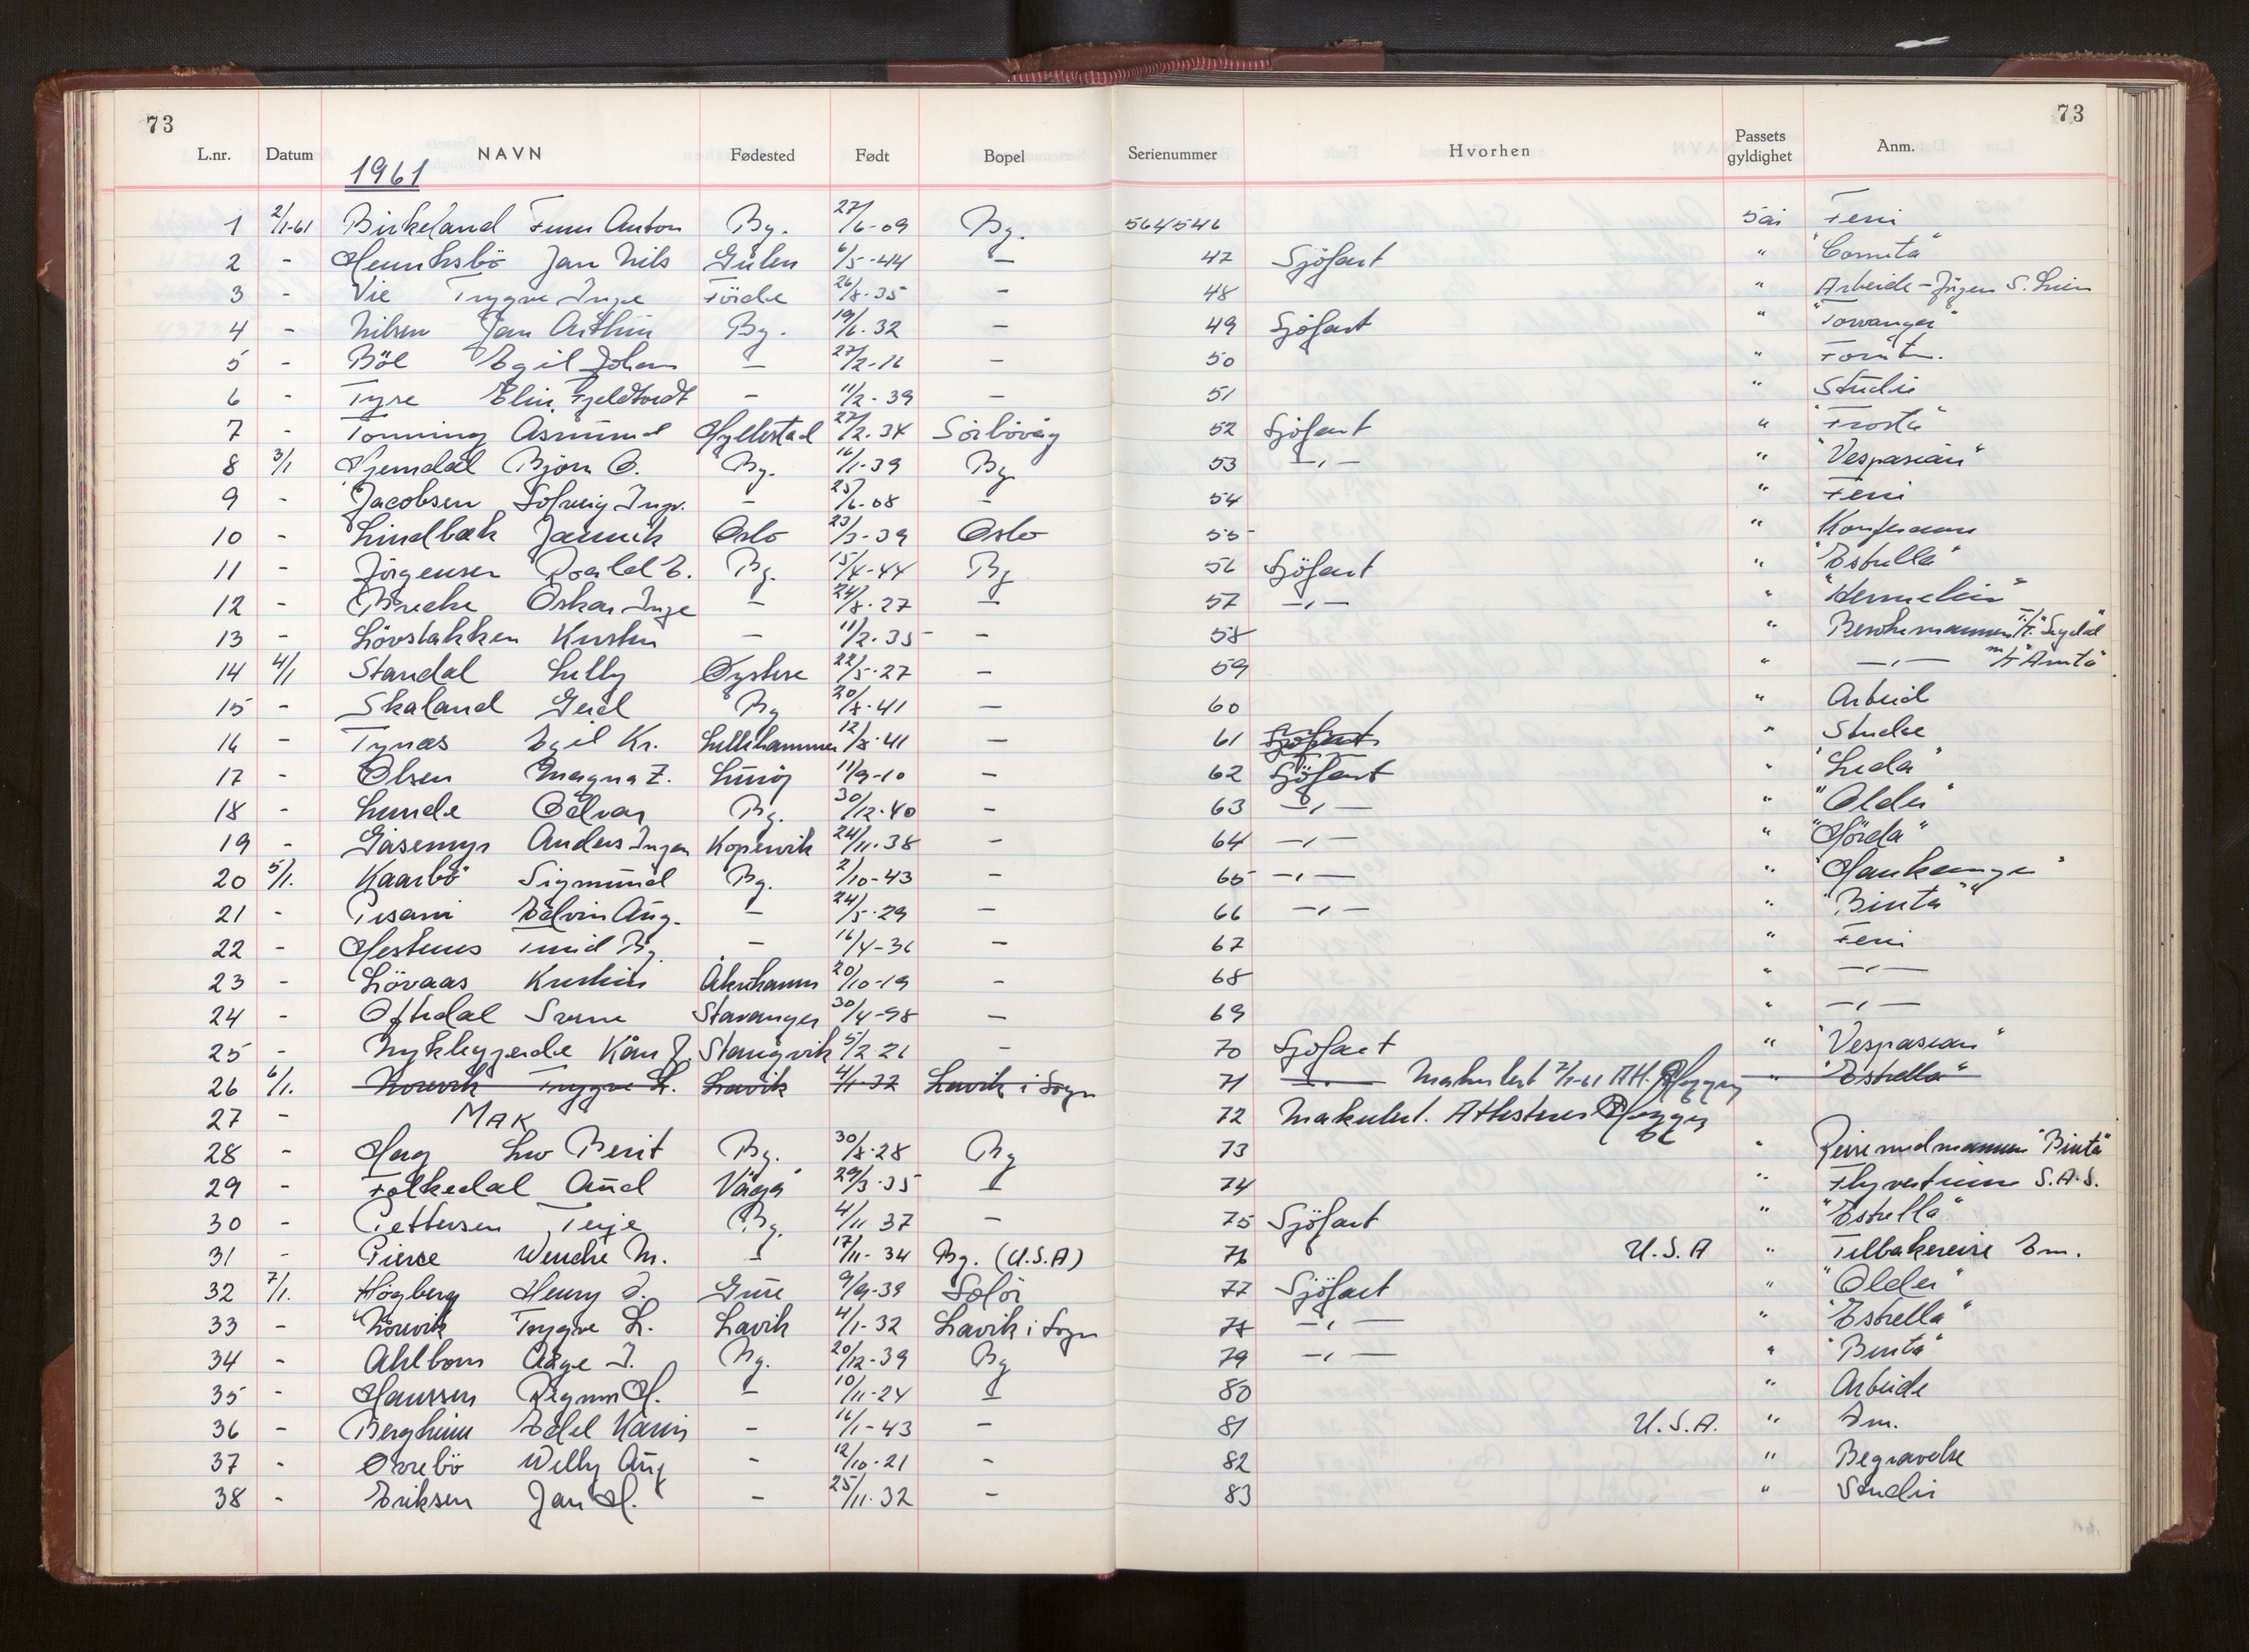 73 73
L.nr. Datum NAVN Fødested Født Bopel Serienummer Hvorhen Passets gyldighet Anm.
1961
1 2/1-61 Birkeland Finn Anton By. 27/6-09 By. 564546 5 år Feri
2 - Jan Nils Gulen 6/5-44 - 47 Sjöfart " "Comita"
3 - Vie Trygve Inge Förde 26/8-35 - 48 " Arbeide - S.
4 - Nilsen Jan Arthur By. 19/6-32 - 49 Sjöfart " "Torvanger"
5 - Böe Egil Johan - 27/2-16 - 50 "
6 - Elin - 11/2-39 - 51 " Studie
7 - Tonning Asmund Hyllestad 27/2-34 Sörbövåg 52 Sjöfart " "Frosta"
8 3/1 Bjørn O. By. 16/1-39 By 53 -,- " "Vespasian"
9 - Jacobsen Solveig Ingr. - 25/6-08 - 54 " Feri
10 - Lindbæk Jannik Oslo 23/3-39 Oslo 55 "
11 - Jörgensen Roald E. By. 15/4-44 By 56 Sjöfart " "Estrella"
12 - Oskar Inge - 24/8-27 - 57 -,- " "Hermelin"
13 - Lövstakken Kirsten - 11/2-35 - 58 "
14 4/1 Standal Lilly Øystese 22/5-27 - 59 " -,-
15 - Skaland Gerd By 20/8-41 - 60 " Arbeid
16 - Tynæs Egil Kr. Lillehammer 12/8-41 - 61 Sjöfart " Studie
17 - Olsen Magna Z. 11/9-10 - 62 Sjöfart " "Leda"
18 - Lunde Oddvar By. 30/12-40 - 63 -,- " "Older"
19 - Gåsemyr Anders Kopervik 24/11-38 - 64 -,- " "Hörda"
20 5/1. Kaarbö Sigmund By. 2/10-43 - 65 -,- " "Haukanger"
21 - Pisani Edvin Aug. - 24/5-29 - 66 -,- " "Binta"
22 - Turid By. - 16/4-36 - 67 " Feri
23 - Lövaas Åkrehamn 20/10-19 - 68 " -,-
24 - Oftedal Stavanger 30/4-98 - 69 " -,-
25 - Kåre J. Stangvik 5/2-21 - 70 Sjöfart " "Vespasian"
26 6/1. Trygve L. Lavik 4/1-32 Lavik i Sogn 71 Makulert 7/1-61 " "Estrella"
27 - MAK 72 Makulert.
28 - Berit By. 30/8-28 By 73 " "Binta"
29 - Folkedal Aud Vågå 29/3-35 - 74 " Flyvertinne S.A.S.
30 - Pettersen Terje By. 4/11-37 - 75 Sjöfart " "Estrella"
31 - Pierce Wenche M. - 17/11-34 By. (U.S.A) 76 U.S.A " Tilbakereise Em.
32 7/1. Högberg Henry J. Grue 9/9-39 Solör 77 Sjöfart " "Older"
33 - Trygve L. Lavik 4/1-32 Lavik i Sogn 78 -,- " "Estrella"
34 - Ahlbom Aage J. By. 20/12-39 By 79 -,- " "Binta"
35 - Hanssen Ragnar H. - 10/11-24 - 80 " Arbeide
36 - Bergheim Edel Karin - 16/1-43 - 81 U.S.A. " Em.
37 - Orrebö Willy Aug - 12/10-21 - 82 " Begravelse
38 - Eriksen Jan H. - 25/11-32 - 83 " Studie